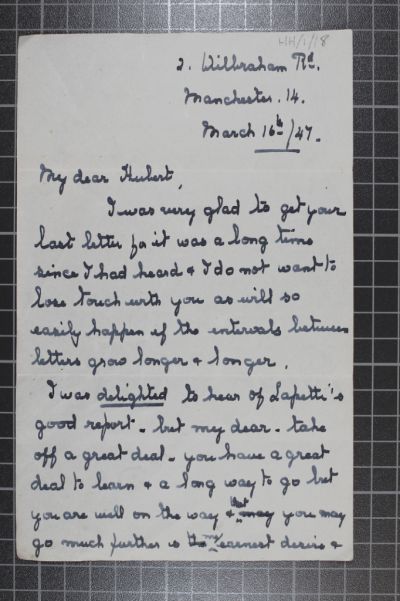 HH/1/18
2. Wilbraham Rd.
Manchester. 14.
March 16th/47.
My dear Hubert,
I was very glad to get your
last letter for it was a long time
since I had heard & I do not want to
lose touch with you as will so
easily happen if the intervals between
letters grow longer & longer.
I was delighted to hear of Lapetti's
good report - but my dear - take
off a great deal - you have a great
deal to learn & a long way to go but
you are well on the way & that may you may
go much further is the my earnest desire &